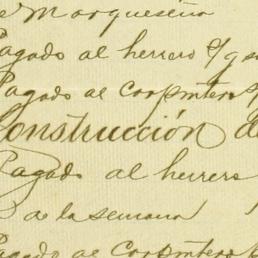 Marqueseña
Pagado al herrero
Pagado al carpintero
Construcción de
Pagado al herrero
de la semana
Pagado al carpintero